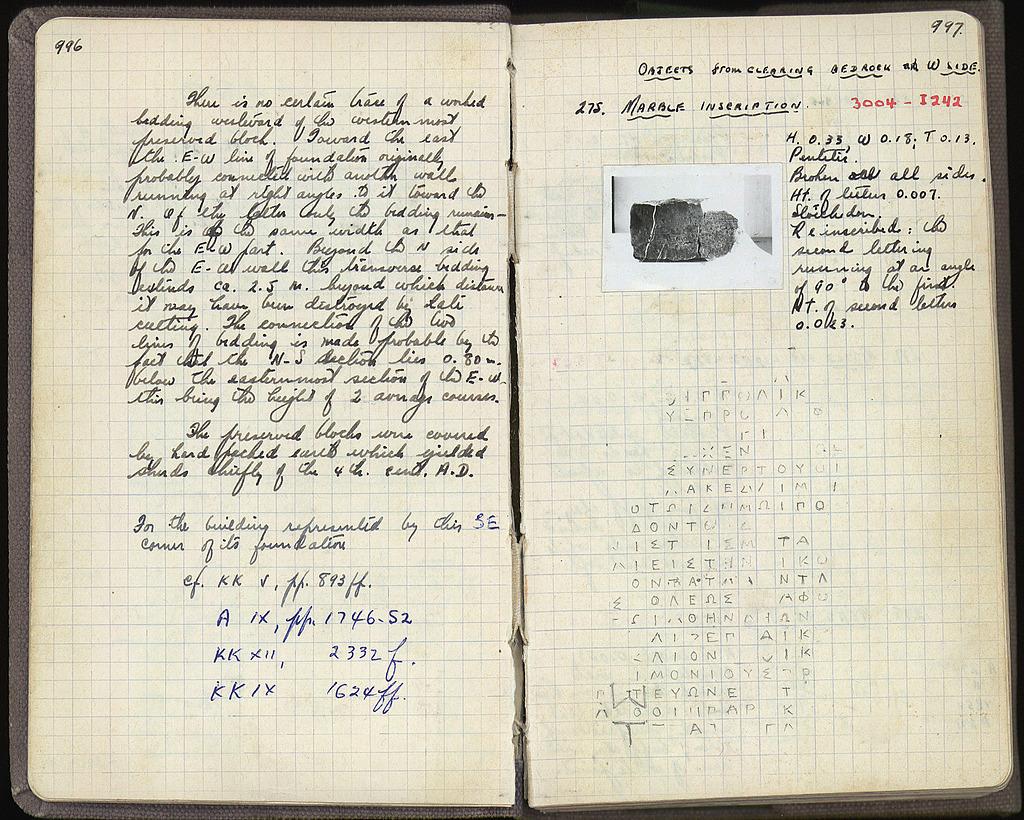 996
There is no certain trace of a worked
bedding westward of the westernmost
preserved block. Toward the east
the E-W line of foundation originally
probably connected with another wall
running at right angles to it toward the
N. Of the latter only the bedding remains –
This is of the same width as that
for the E-W part. Beyond the N side
of the E-W wall this transverse bedding
extends ca. 2.5 m. beyond which distance
it may have been destroyed by late
cutting. The connection of the two
lines of bedding is made probable by the
fact that the N-S section lies 0.80 m.
below the easternmost section of the E-W
this being the height of 2 average courses.
The preserved blocks were covered
by hard packed earth which yielded
sherds chiefly of the 4th. cent. A.D.
For the building represented by this SE
corner of its foundation
cf. KK V, pp. 893 ff.
A IX, pp. 1746-52
KK XII, 2332 f.
KK IX 1624 ff.
997.
OBJECTS from CLEARING BEDROCK at W SIDE.
275. MARBLE INSCRIPTION. 3004 - I 242
H. 0.33; W 0.18; T 0.13.
Pentelic.
Broken all sides.
Ht. of letters 0.007.
Stoichedon.
Reinscribed: the
second lettering
running at an angle
of 90° to the first.
Ht. of second letters
0.023.
ΣΥΝΕΡΤΟΥ
ΔΟΝΤ
ΙΣΤ ΙΣΜ ΤΑ
ΛΙΕΙΣΤΗΝ ΙΚ
Σ ΟΛΕΩΣ ΑΦ
ΛΙΟΝ ΙΚ
ΙΜΟΝΙΟΥΣ Ρ
ΠΕΥΩΝΕ Τ